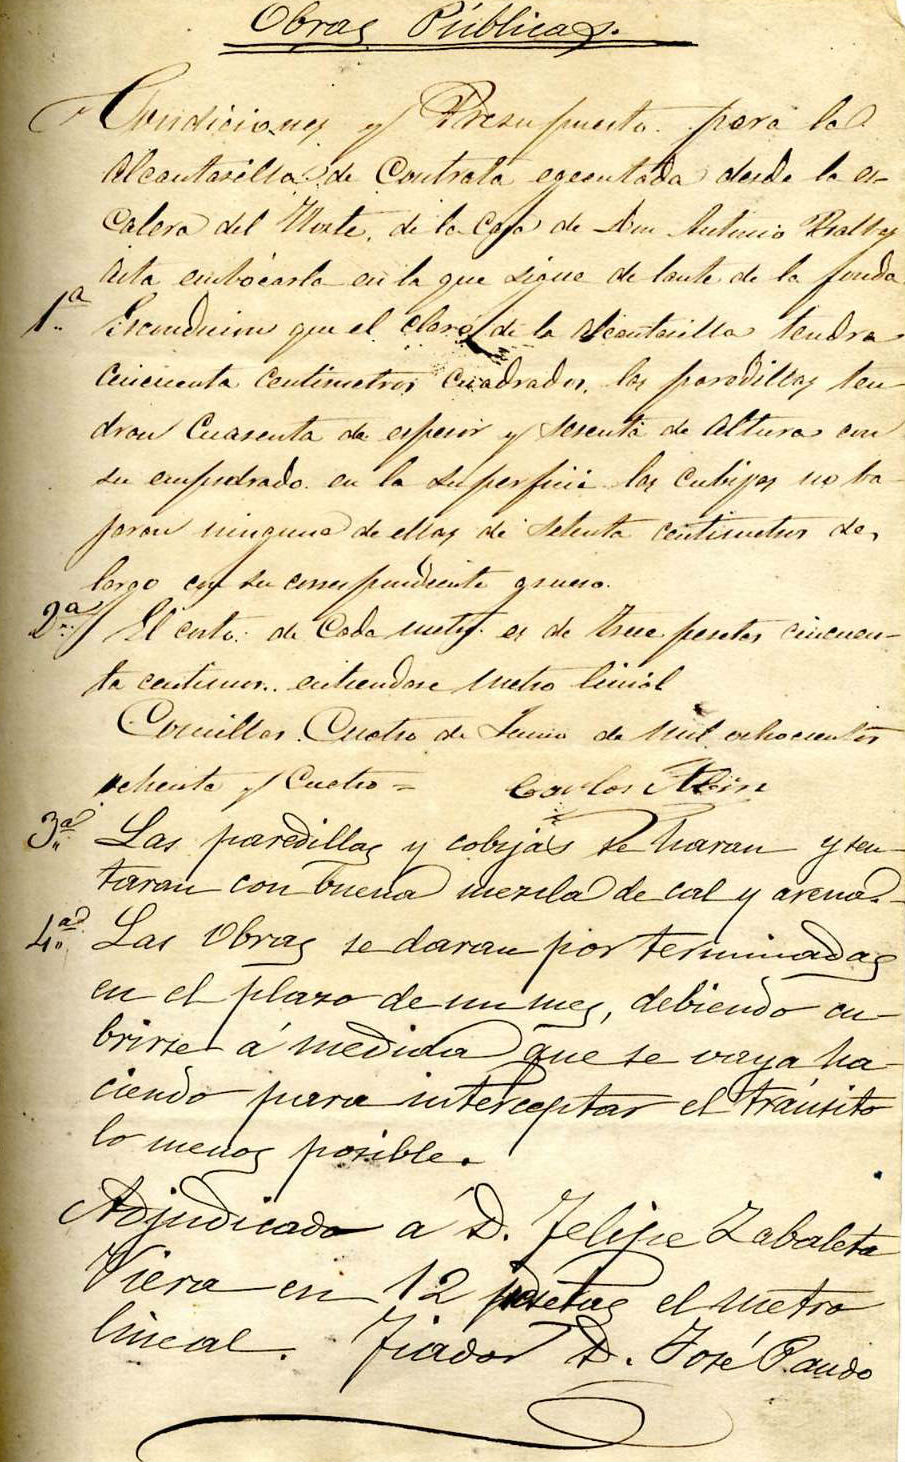 Obras Públicas.
Condiciones y Presupuesto para la
alcantarilla de Contrata egecutada desde la es-
calera del Norte, de la Casa de Don Antonio
asta embocarla en la que sigue de lante de la fonda
1.ª que el claro de la alcantarilla tendra
cincuenta centimetros cuadrados, las paredillas ten-
dran Cuarenta de espesor y sesenta de altura con
su empedrado en la superficie las cubijas no ba-
jaran ninguna de ellas de setenta centimetros de
largo con su correspondiente grueso.
2.ª El costo de Cada metro es de Trece pesetas cincuen-
ta centimos.. entiendase Metro linial
Comillas Cuatro de Junio de Mil ochocientos
ochenta y Cuatro = Carlos
3.ª Las paredillas y cobijas se haran y sen-
taran con buena mezcla de cal y arena.
4.ª Las Obras se daran por terminadas
en el plazo de un mes, debiendo cu-
brirse á medida que se vaya ha-
ciendo para interceptar el tránsito
lo menos posible.
Adjudicada á D. Felipe Zabaleta
Viera en 12 pesetas el metro
lineal. Fiador D. José Pando